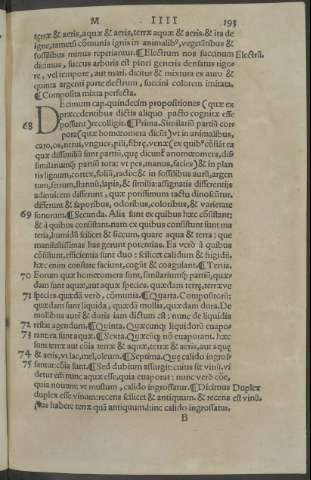 M IIII 193
terræ & aeris, aquæ & aeris, terræ aquæ & aeris. & ita de
igne, tametsi cōmunis ignis in animalib⁹, vegetātibus &
fossilibus minus reperiantur. ¶Electrum nos succinum Electrū.
dicimus, succus arboris est pinei generis densatus rigo
re, vel tempore, aut mari. dicitur & mixtura ex auro &
quinta argenti parte electrum, succini colorem imitata.
¶Composita mixta perfecta.
DEcimum cap. quindecim propositiones (quæ ex
præcedentibus dictis aliquo pacto cognitæ esse
68 possunt) recolligit. ¶Prima. Similariū partiū cor
pora (quæ homœomera dicūt) vt in animalibus,
caro, os, nerui, vngues, pili, fibrę, venæ (ex quib⁹ cōstāt ea
quæ dissimiliū sunt partiū, quę dicunt anomœomera, dissi
similariumq́ partiū: vt pes, manus, facies) & in plan
tis lignum, cortex, foliū, radix: & in fossilibus aurū, argen
tum, ferrum, stannū, lapis, & similia: assignatis differentijs
adinuicem differunt, quæ potissimum tactu dinoscūtur.
differunt & saporibus, odoribus, coloribus, & varietate
69 sonorum. ¶Secunda. Alia sunt ex quibus hæc cōstant:
& à quibus consistant. nam ex quibus consistunt sunt ma
teria, humidū scilicet & siccum, quare aqua & terra: quę
manifestissimas has gerunt potentias. Ea verò à quibus
cōsistunt, efficientia sunt duo: scilicet calidum & frigidū.
hæc enim constare faciunt, cogūt & coagulant. ¶Tertia.
70 Eorum quæ homœomera sunt, similariumq́ partiū, quæ-
dam sunt aquæ, aut aquæ species. quædam terrę, terræve
71 species. quædā verò, cōmunia. ¶Quarta. Compositorū:
quædam sunt liquida, quædā mollia, quædam dura. De
mollibus autē & duris iam dictum est: nunc de liquidis
72 restat agendum. ¶Quinta. Quæcunq́ liquidorū euapo-
73 rant, ea sunt aquæ. ¶Sexta. Quæcūq́ nō euaporant. hæc
sunt terræ aut cōia terræ & aquæ, terræ & aeris, aut aquę
74 & aeris, vt lac, mel, oleum. ¶Septima. Quę calido ingros-
75 santur, cōia sunt. ¶Sed dubium assurgit: cuius sit vinū. vi
detur esse nunc aquæ esse, quia euaporat: nunc verò cōe,
quia nouum vt mustum, calido ingrossatur. ¶Dicimus Duplex
duplex esse vinum: recens scilicet & antiquum. & recens est vinū.
plus habere terræ quā antiquum. hinc calido ingrossatur.
B